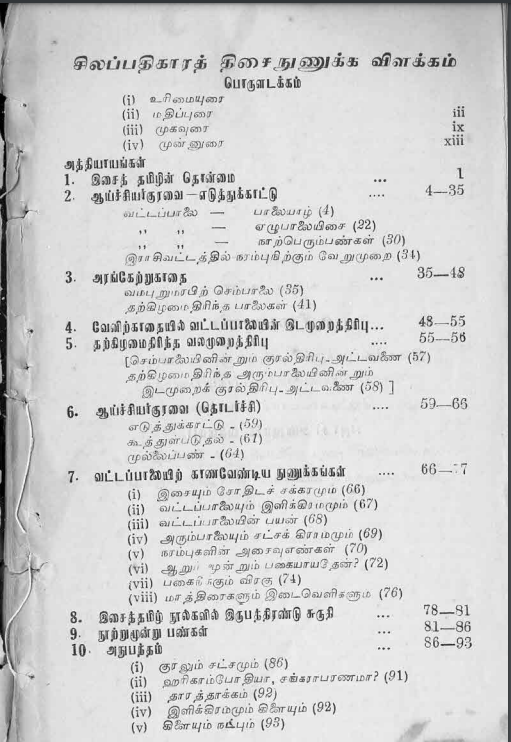 சிலப்பதிகாரத் திசைநுணுக்க விளக்கம்
பொருளடக்கம்
(i) உரிமையுரை
(ii) மதிப்புரை iii
(iii) முகவுரை ix
(iv) முன்னுரை xiii
அத்தியாயங்கள்
1. இசைத் தமிழின் தொன்மை ... 1
2. ஆய்ச்சியர்குரவை—எடுத்துக்காட்டு .... 4—35
வட்டப்பாலை — பாலையாழ் (4)
,, ,, — எழுபாலையிசை (22)
,, ,, — நாற்பெரும்பண்கள் (30)
இராசிவட்டத்தில் நரம்புநிற்கும் வேறுமுறை (34)
3. அரங்கேற்றுகாதை ... 35—48
வம்புறுமரபிற் செம்பாலை (35)
தற்கிழமைதிரிந்த பாலைகள் (41)
4. வேனிற்காதையில் வட்டப்பாலையின் இடமுறைத்திரிபு... 48—55
5. தற்கிழமைதிரிந்த வலமுறைத்திரிபு .... 55—56
[செம்பாலையினின்றும் குரல்திரிபு-அட்டவணை (57)
தற்கிழமைதிரிந்த அரும்பாலையினின்றும்
இடமுறைக் குரல்திரிபு-அட்டவணை (58) ]
6. ஆய்ச்சியர்குரவை (தொடர்ச்சி) .... 59—66
எடுத்துக்காட்டு - (59)
கூத்துள்படுதல் - (61)
முல்லைப்பண் - (64)
7. வட்டப்பாலையிற் காணவேண்டிய நுணுக்கங்கள் .... 66—77
(i) இசையும் சோதிடச் சக்கரமும் (66)
(ii) வட்டப்பாலையும் இளிக்கிரமமும் (67)
(iii) வட்டப்பாலையின் பயன் (68)
(iv) அரும்பாலையும் சட்சக் கிராமமும் (69)
(v) நரம்புகளின் அரைசுஎண்கள் (70)
(vi) ஆறு மூன்றும் பகையாயதேன்? (72)
(vii) பகைநீக்கும் விரகு (74)
(viii) மாத்திரைகளும் இடைவெளிகளும் (76)
8. இசைத்தமிழ் நூல்களில் இருபத்திரண்டு சுருதி ... 78—81
9. நூற்றுமூன்று பண்கள் ... 81—86
10. அநுபத்தம் ... 86—93
(i) குரலும் சட்சமும் (86)
(ii) ஹரிகாம்போதியா, சங்கராபரணமா? (91)
(iii) தாரத்தாக்கம் (92)
(iv) இளிக்கிரமமும் கிளையும் (92)
(v) கிளையும் நட்பும் (93)